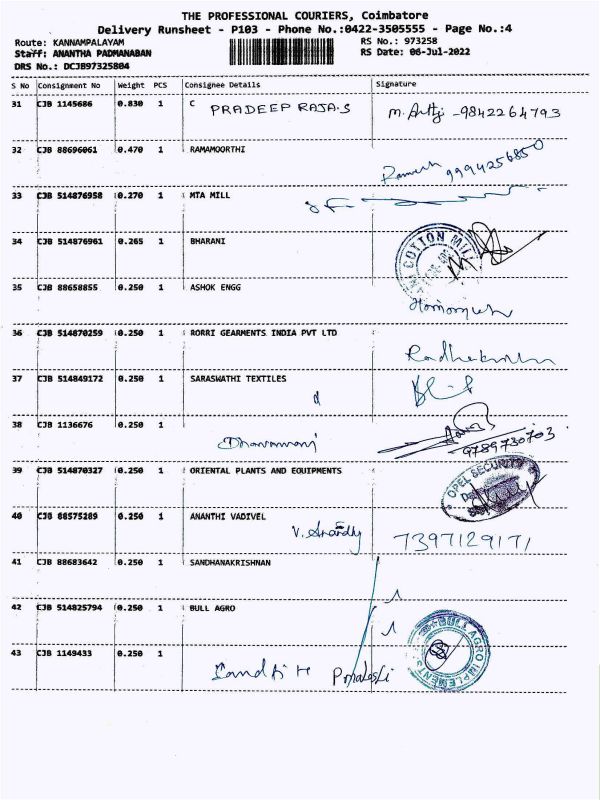 THE PROFESSIONAL COURIERS, Coimbatore
Delivery Runsheet - P103 - Phone No.:0422-3505555 - Page No.:4
Route: KANNAMPALAYAM RS No.: 973258
Staff: ANANTHA PADMANABAN RS Date: 06-Jul-2022
DRS No.: DCJB97325804
S No Consignment No Weight PCS Consignee Details Signature
31 CJB 1145686 0.830 1 C PRADEEP RAJA.S 9842264793
32 CJB 88696061 0.470 1 RAMAMOORTHI Ramesh 9994256850
33 CJB 514876958 0.270 1 MTA MILL
34 CJB 514876961 0.265 1 BHARANI
COTTON MILL
35 CJB 88658855 0.250 1 ASHOK ENGG
36 CJB 514870259 0.250 1 RORRI GEARMENTS INDIA PVT LTD
37 CJB 514849172 0.250 1 SARASWATHI TEXTILES
38 CJB 1136676 0.250 1 Dhavamani 9789730703
39 CJB 514870327 0.250 1 ORIENTAL PLANTS AND EQUIPMENTS
OPEL SECURITY
40 CJB 88575289 0.250 1 ANANTHI VADIVEL
V. Anandhy 7397129171
41 CJB 88683642 0.250 1 SANDHANAKRISHNAN
42 CJB 514825794 0.250 1 BULL AGRO
BULL AGRO IMPLEMENTS
43 CJB 1149433 0.250 1